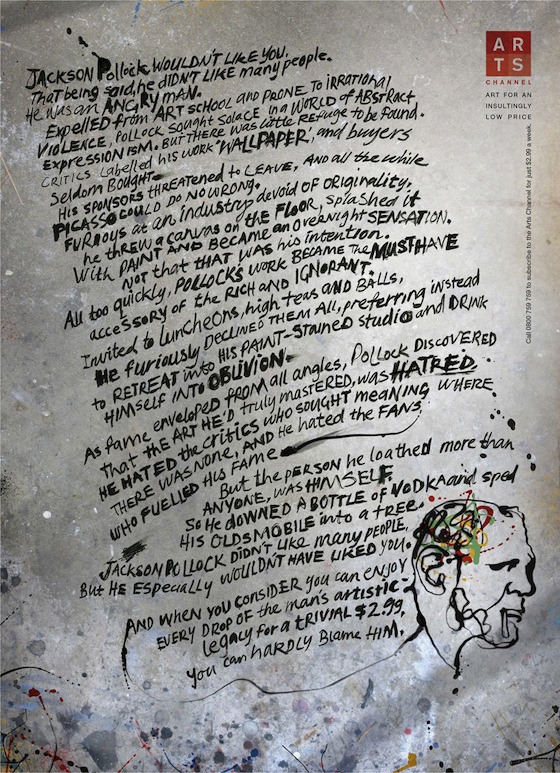 JACKSON Pollock WOULDN'T LIKE YOU.
That being said, he DIDN'T LIKE many people.
He was an ANGRY MAN.
Expelled from ART SCHOOL and PRONE To irrational
VIOLENCE, Pollock Sought SOLACE in a WORLD of ABSTRACT
EXPRESSIONISM. BUT THERE was little Refuge to be found.
CRITICS labelled his work 'WALLPAPER', and buyers
Seldom Bought.
His SPONSORS THREATENED to LEAVE, AND all the while
PICASSO COULD DO NO WRONG.
FURIOUS at an industry devoid OF ORIGINALITY,
he threw a canvas on the FLOOR, splashed it
With PAINT AND BECAME an overnight SENSATION.
NOT that THAT WAS his intention.
All too quickly, POLLOCK'S work BECAME The MUST HAVE
accessory of the RICH AND IGNORANT.
Invited to luncheons, high teas AND BALLS,
He furiously DECLINED THEM All, preferring instead
to RETREAT into HIS PAINT-STAINED studio and DRINK
HIMSELF INTO OBLIVION.
As fame enveloped FROM all angles, POLLOCK DISCOVERED
that THE ART HE'D truly mastered, was HATRED.
HE HATED the critics who SOUGHT meaning WHERE
THERE WAS NONE, AND He hated the FANS
WHO FUELLED HIS FAME
But the PERSON he loathed more than
ANYONE, WAS HIMSELF.
So He DOWNED A BOTTLE of VODKA and sped
HIS OLDSMOBILE into a TREE.
JACKSON POLLOCK DIDN'T LIKE many PEOPLE,
BUT HE ESPECIALLY WOULDN'T HAVE LIKED YOU.
AND WHEN YOU CONSIDER YOU can ENJOY
EVERY DROP OF THE man's artistic
legacy for a TRIVIAL $2.99,
you can HARDLY Blame HIM.
AR
TS
CHANNEL
ART FOR AN
INSULTINGLY
LOW PRICE
Call 0800 759 759 to subscribe to the Arts Channel for just $2.99 a week.